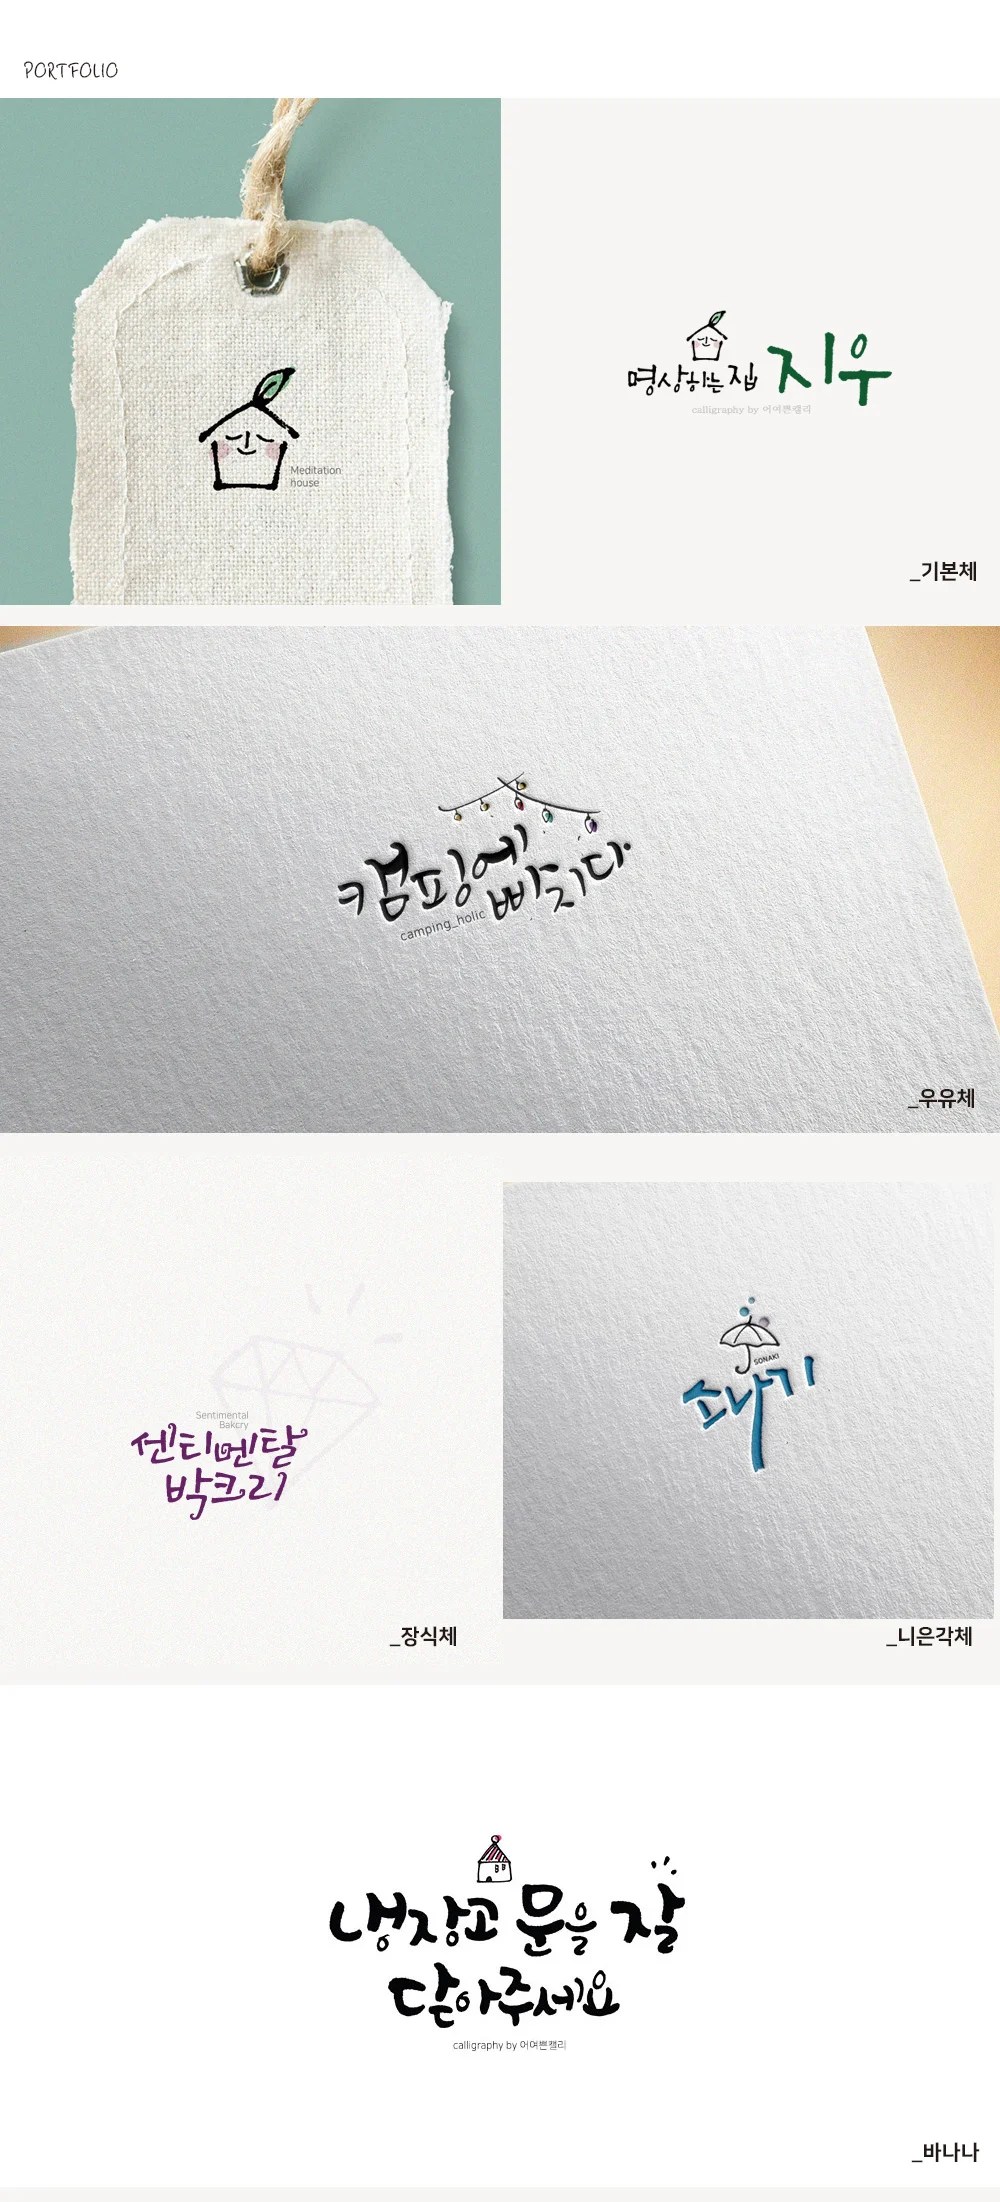 PORTFOLIO
Meditation
house
명상하는집 지우
calligraphy by 어여쁜캘리
_기본체
캠핑에 빠지다
camping_holic
_우유체
Sentimental
Bakery
센티멘탈
박크리
_장식체
SONAKI
소나기
_니은각체
냉장고 문을 잘
닫아주세요
calligraphy by 어여쁜캘리
_바나나